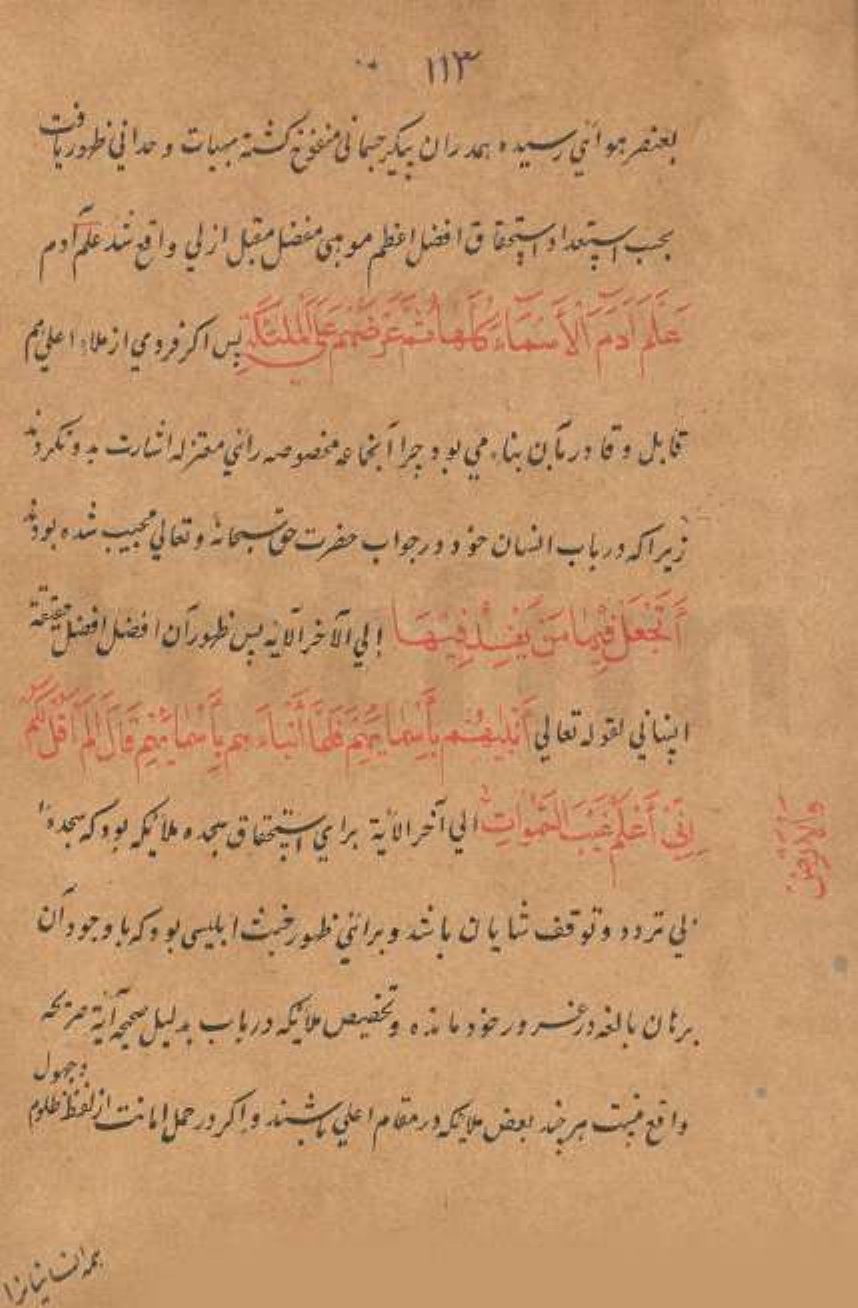 ۱۱۳
بعنصر هوائي رسيده همدران پيكر جسماني منفوخ كشته بهيات وحداني ظهور يافت
بحسب استعداد و استحقاق افضل اعظم موهبي مفضل مقبل ازلي واقع شد علم آدم
عَلَّمَ آدَمَ الْأَسْمَاءَ كُلَّهَا ثُمَّ عَرَضَهُمْ عَلَى الْمَلٰئِكَةِ پس اكر فردي از ملاء اعلي هم
قابل و قادر بآن بناء مي بود چرا آنجماعه مخصوصه رائي معتزله اشارت بدو نكردند
زيرا كه در باب انسان خود در جواب حضرت حق سبحانه و تعالي مجيب شده بودند
أَتَجْعَلُ فِيهَا مَنْ يُفْسِدُ فِيهَا إلي الآخر الآيه پس ظهور آن افضل افضل حقيقة
انساني لقوله تعالي أَنْبِئْهُمْ بِأَسْمَائِهِمْ فَلَمَّا أَنْبَاءَهُمْ بِأَسْمَائِهِمْ قَالَ أَلَمْ أَقُلْ لَكُمْ
إِنِّي أَعْلَمُ غَيْبَ السَّمٰوَاتِ الي آخر الآية براي استحقاق سجده ملايكه بود كه سجده
وَالْأَرْضِ
بي تردد و توقف شايان باشد و برائي ظهور خبث ابليسي بود كه با وجود آن
برهان بالغه در غرور خود مانده و تخصيص ملايكه در باب بدليل صحيحه آية صريحه
واقع نيست هر چند بعض ملايكه در مقام اعلي باشند و اكر در حمل امانت از لفظ ظلوم
و جهول
همه انسانيانرا